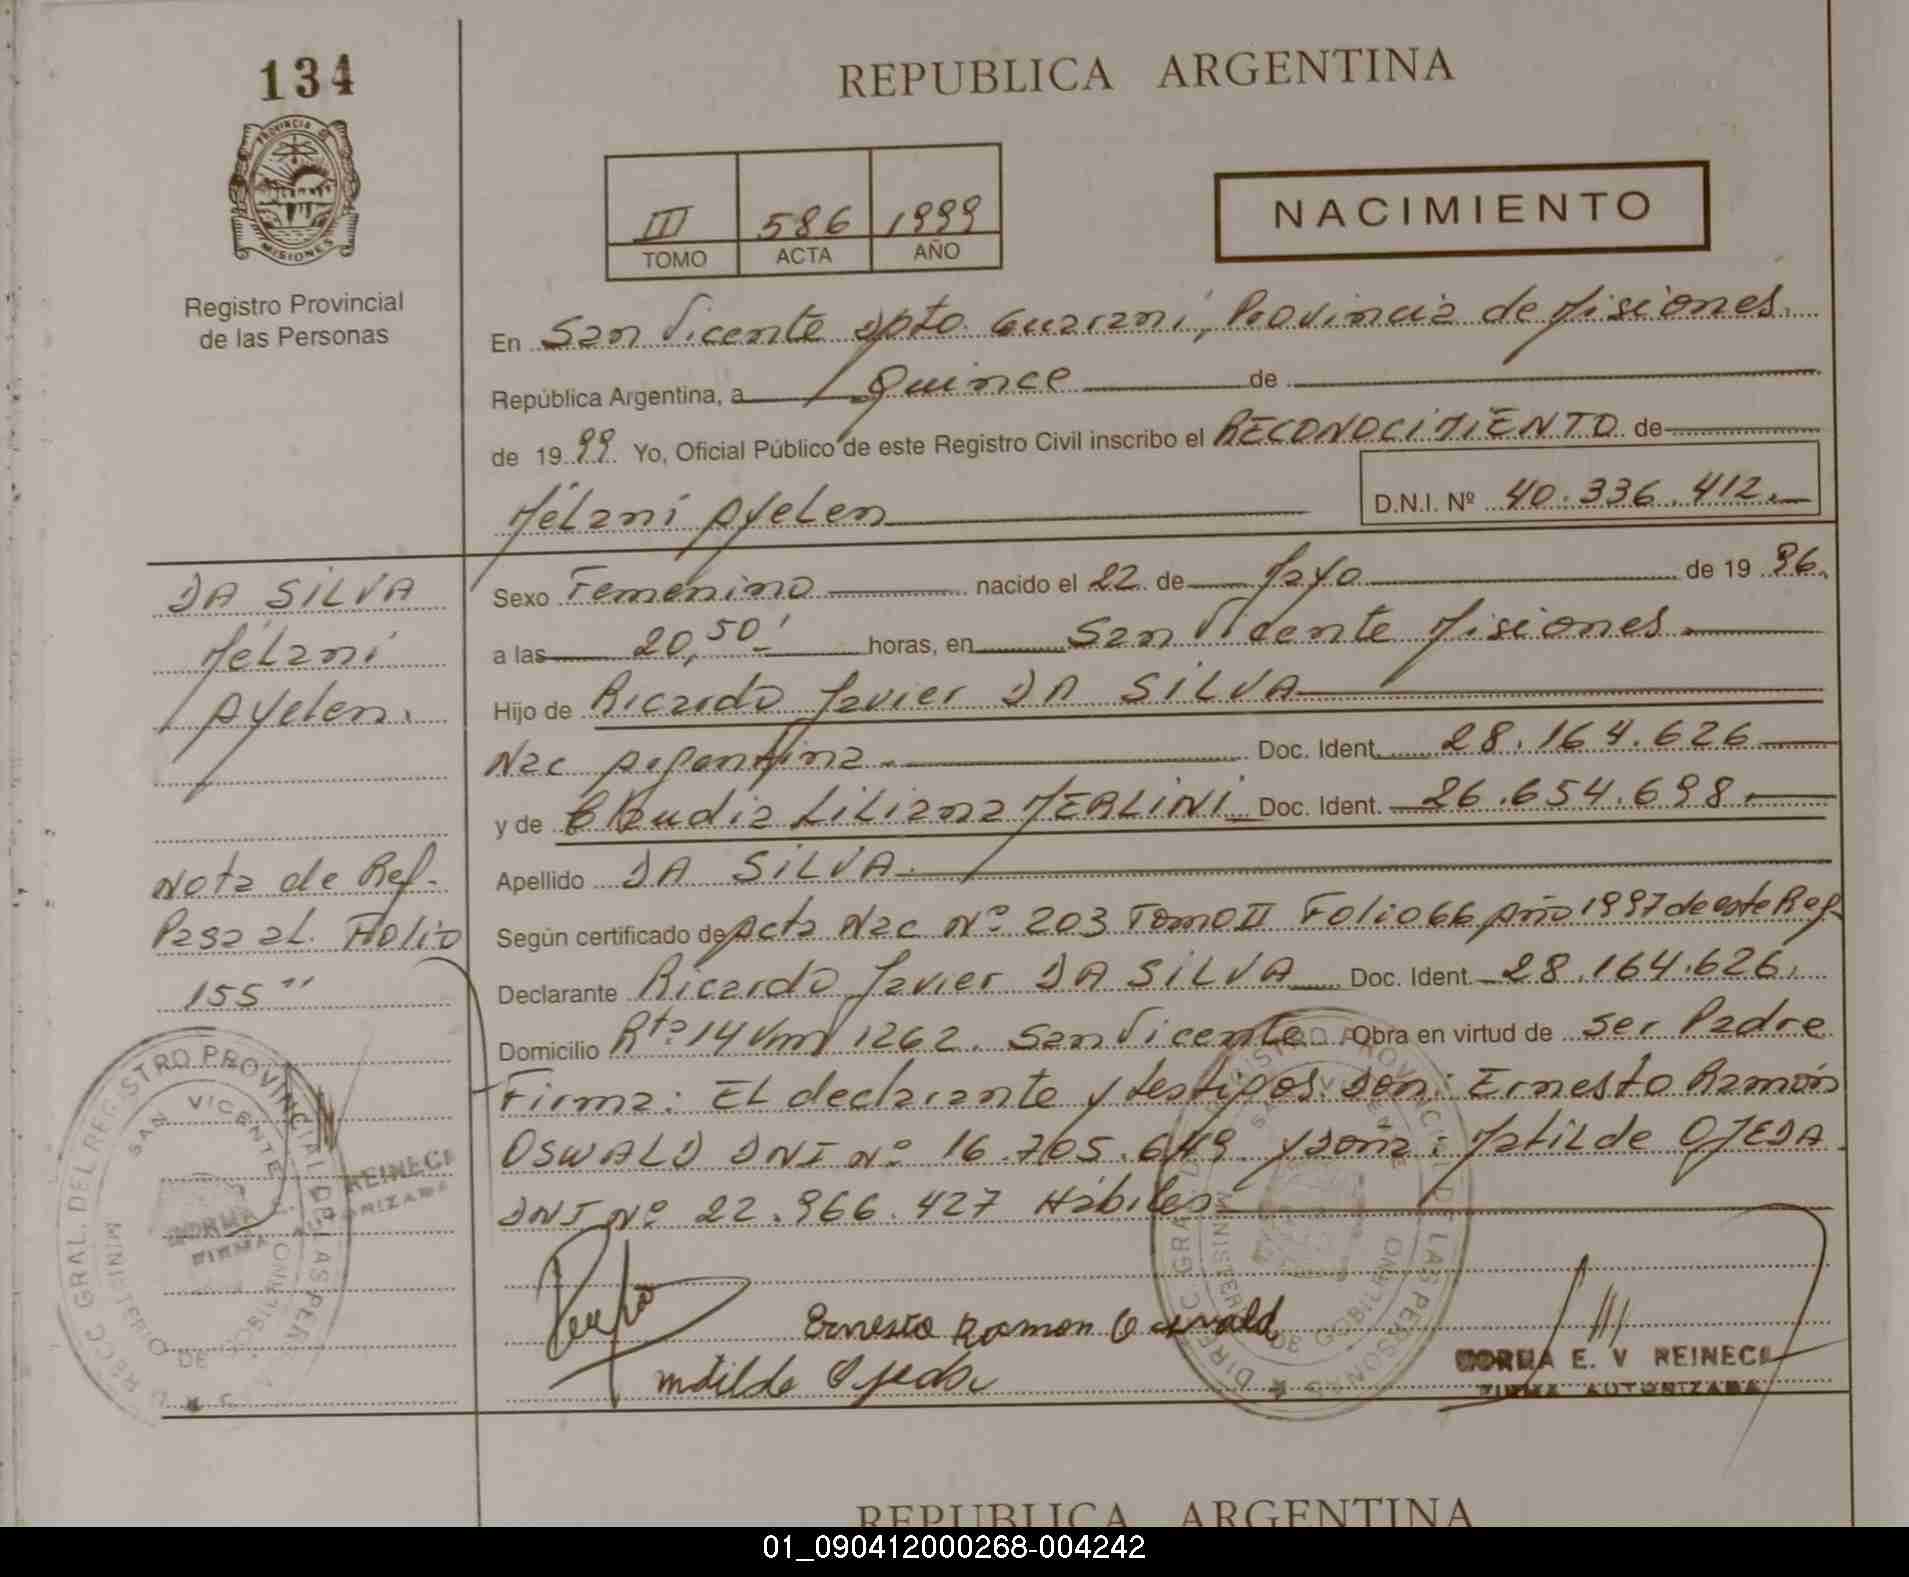 134
REPUBLICA ARGENTINA
PROVINCIA DE
MISIONES
Registro Provincial
de las Personas
III 586 1999
TOMO ACTA AÑO
NACIMIENTO
En San Vicente Dpto. Guaraní, Provincia de Misiones.
República Argentina, a Quince de
de 1999 Yo, Oficial Público de este Registro Civil inscribo el RECONOCIMIENTO de
Mélani Ayelen D.N.I. Nº 40.336.412.
DA SILVA
Mélani
Ayelen.
Nota de Ref.
Pasa al Folio
155"
Sexo Femenino nacido el 22 de Mayo de 1996.
a las 20,50' horas, en San Vicente Misiones
Hijo de Ricardo Javier DA SILVA
Nac Argentina. Doc. Ident. 28.164.626
y de Claudia Liliana MERLINI Doc. Ident. 26.654.698.
Apellido DA SILVA.
Según certificado de Acta Nac Nº 203 Tomo II Folio 66 Año 1997 de este Reg.
Declarante Ricardo Javier DA SILVA Doc. Ident. 28.164.626.
Domicilio Rta 14 Km 1262. San Vicente Obra en virtud de ser Padre
Firma: El declarante y testigos Don: Ernesto Ramón
OSWALD DNI Nº 16.705.649 y Doña: Matilde OJEDA
DNI Nº 22.966.427 Hábiles
Ernesto Ramon Oswald
Matilde Ojeda
NORMA E. V REINECK
FIRMA AUTORIZADA
DIRECC GRAL DEL REGISTRO PROVINCIAL DE LAS PERSONAS
SAN VICENTE
MINISTERIO DE GOBIERNO
NORMA E. REINECK
FIRMA AUTORIZADA
REPUBLICA ARGENTINA
01_090412000268-004242